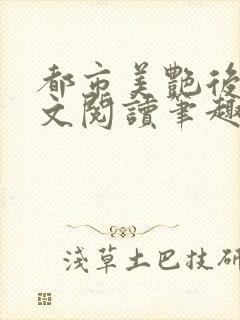 都市美艷後
文閱讀筆趣
淺草土巴技研